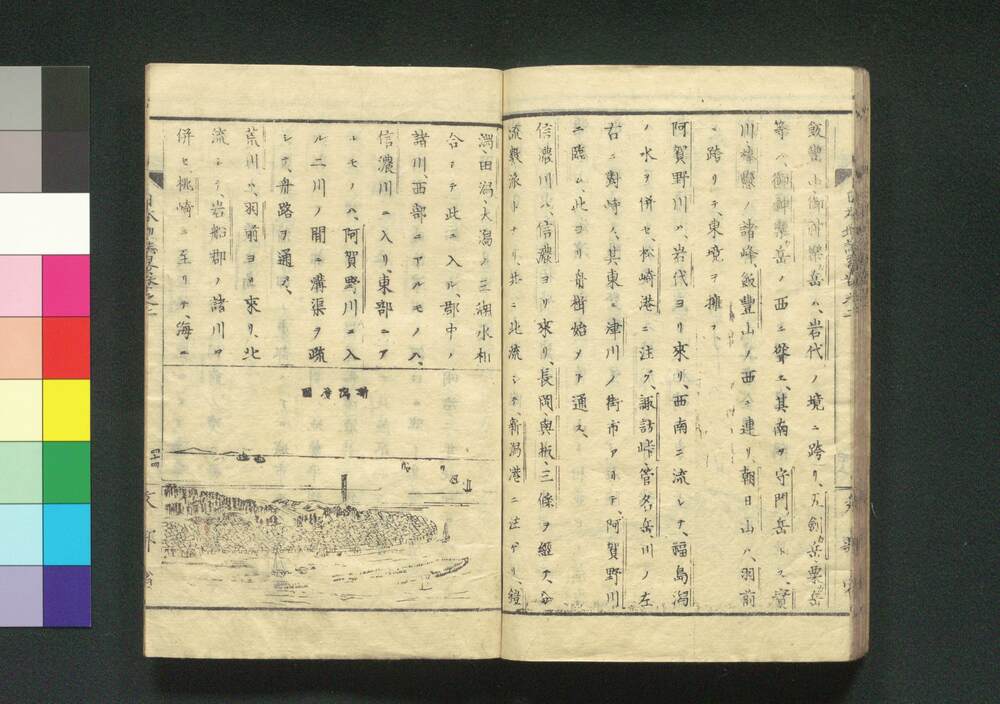 飯豊山御前樂岳ハ、岩代ノ境ニ跨リ、五劍岳粟岳
等ハ、御神樂岳ノ西ニ聳エ、其南ヲ守門岳トス、實
川ノ諸峰飯豊山ノ西ニ連リ、朝日山ハ、羽前
ニ跨リテ、東境ヲ擁ス
阿賀野川ハ、岩代ヨリ來リ、西南ニ流レテ、福島潟
ノ水ヲ併セ、松崎港ニ注グ、諏訪峠、菅名岳、川ノ左
右ニ對峙ス、其東ニ津川ノ街市アリテ、阿賀野川
ニ臨ム、此ヨリ舟楫始メテ通ス、
信濃川ハ、信濃ヨリ來リ、長岡、與板、三條ヲ經テ、分
流數派トナリ、共ニ北流シテ、新潟港ニ注ケリ、鎧
潟、田潟、大潟ノ三湖水相
合シテ此ニ入ル、郡中ノ
諸川、西部ニアルモノハ、
信濃川ニ入リ、東部ニア
ルモノハ、阿賀野川ニ入
ル二川ノ間ニ溝渠ヲ疏
シテ、舟路ヲ通ス、
荒川ハ、羽前ヨリ來リ、北
流シテ、岩船郡ノ諸川ヲ
併セ、桃崎ニ至リテ、海ニ
新潟港圖
四十四
文部省